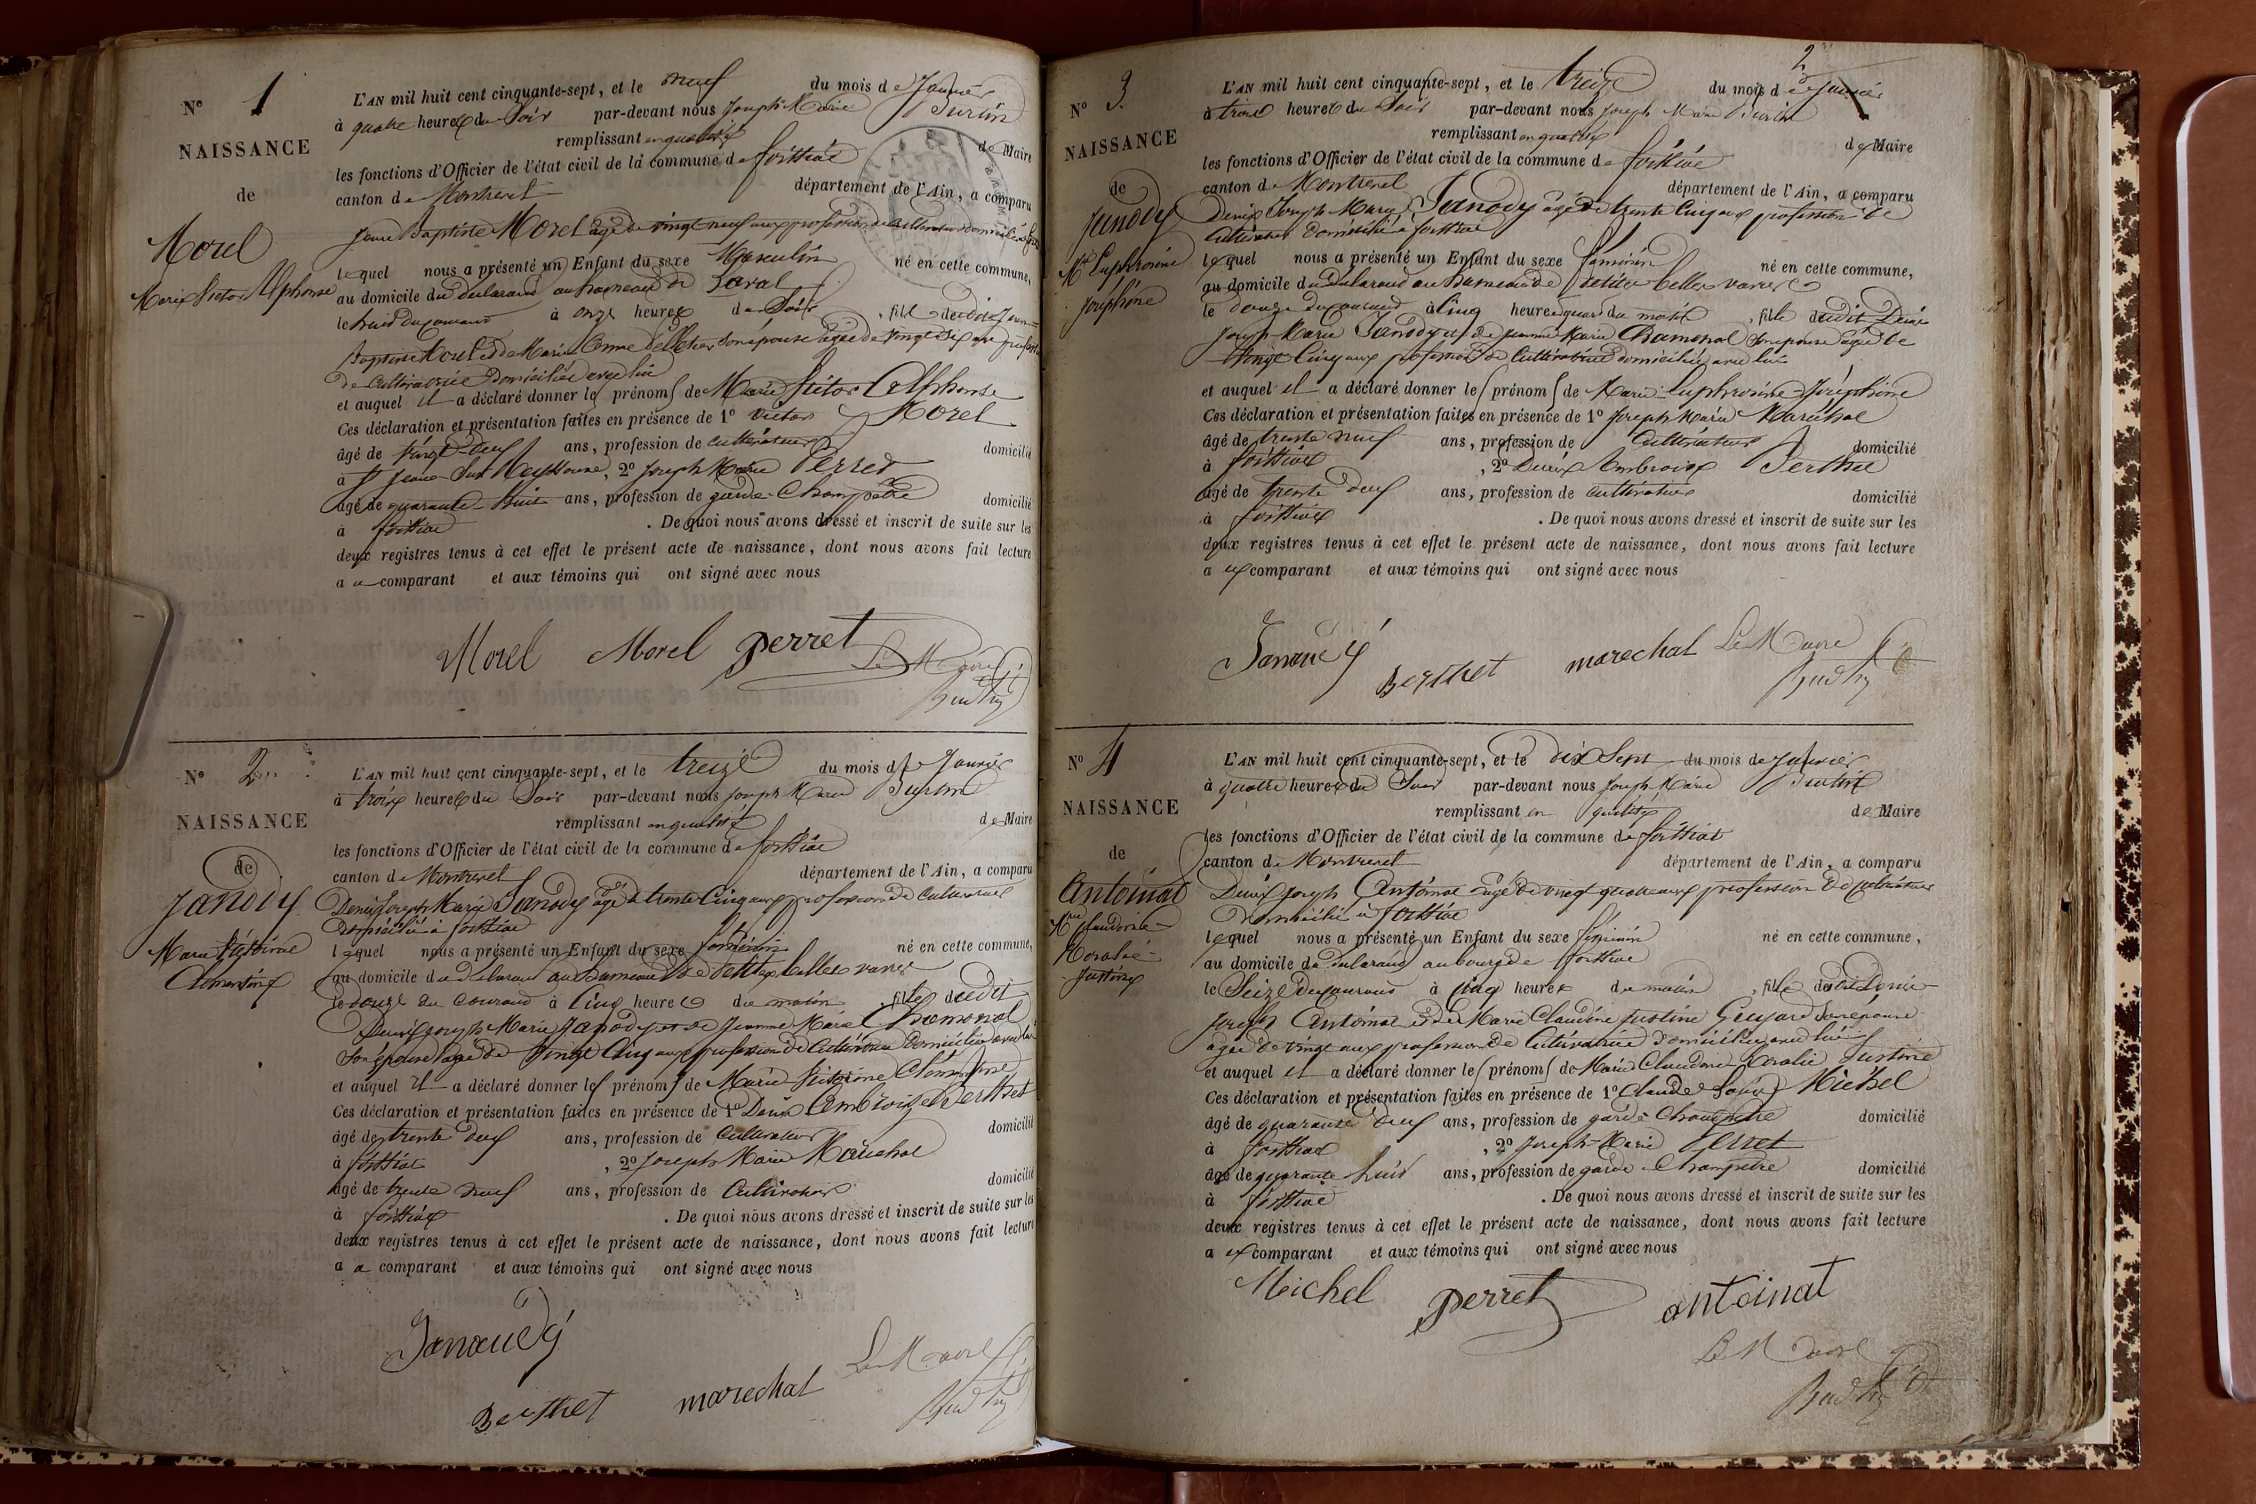 N° 1
NAISSANCE
de
Morel
Marie Victor Alphonse
L'AN mil huit cent cinquante-sept, et le neuf du mois de Janvier
à quatre heures du Soir par-devant nous Joseph Marie
remplissant en qualité de Maire
les fonctions d'Officier de l'état civil de la commune de foissiat
canton de Montrevel département de l'Ain, a comparu
Jean Baptiste Morel âgé de vingt neuf ans profession de cultivateur domicilié à
lequel nous a présenté un Enfant du sexe Masculin né en cette commune,
au domicile du déclarant au hameau de Laval
le huit du courant à onze heures du Soir, fils dudit Jean
Baptiste Morel et de Marie Anne son épouse âgée de vingt six ans
de cultivatrice domiciliée avec lui
et auquel il a déclaré donner les prénoms de Marie Victor Alphonse
Ces déclaration et présentation faites en présence de 1° Victor Morel
âgé de vingt deux ans, profession de cultivateur domicilié
à St Jean Sur Reyssouze, 2° Joseph Marie Perret
âgé de quarante huit ans, profession de garde-Champêtre domicilié
à foissiat. De quoi nous avons dressé et inscrit de suite sur les
deux registres tenus à cet effet le présent acte de naissance, dont nous avons fait lecture
au comparant et aux témoins qui ont signé avec nous
Morel Morel perret Le Maire
N° 2
NAISSANCE
de
Janody
Marie Victorine
Clémentine
L'AN mil huit cent cinquante-sept, et le treize du mois de Janvier
à trois heures du Soir par-devant nous Joseph Marie
remplissant en qualité de Maire
les fonctions d'Officier de l'état civil de la commune de foissiat
canton de Montrevel département de l'Ain, a comparu
Denis Joseph Marie Janody âgé de trente cinq ans profession de cultivateur
domicilié à foissiat
lequel nous a présenté un Enfant du sexe féminin né en cette commune,
au domicile du déclarant au hameau de
le douze du courant à cinq heures du matin, fille dudit
Denis Joseph Marie Janody et de Jeanne Marie Chamonal
son épouse âgée de cinq ans profession de cultivatrice domiciliée avec lui
et auquel il a déclaré donner les prénoms de Marie Victorine Clémentine
Ces déclaration et présentation faites en présence de 1° Denis Ambroise Berthet
âgé de trente deux ans, profession de cultivateur domicilié
à foissiat, 2° Joseph Marie Maréchal
âgé de trente neuf ans, profession de Cultivateur domicilié
à foissiat. De quoi nous avons dressé et inscrit de suite sur les
deux registres tenus à cet effet le présent acte de naissance, dont nous avons fait lecture
au comparant et aux témoins qui ont signé avec nous
Janaudy
Berthet marechal Le Maire
2
N° 3
NAISSANCE
de
Janody
Mie Euphrosine
Joséphine
L'AN mil huit cent cinquante-sept, et le treize du mois de Janvier
à trois heures du Soir par-devant nous Joseph Marie
remplissant en qualité de Maire
les fonctions d'Officier de l'état civil de la commune de foissiat
canton de Montrevel département de l'Ain, a comparu
Denis Joseph Marie Janody âgé de trente cinq ans profession de
cultivateur domicilié à foissiat
lequel nous a présenté un Enfant du sexe féminin né en cette commune,
au domicile du déclarant au hameau de
le douze du courant à cinq heures du matin, fille dudit Denis
Joseph Marie Janody et de Jeanne Marie Chamonal son épouse âgée de
cinq ans profession de cultivatrice domiciliée avec lui
et auquel il a déclaré donner les prénoms de Marie Euphrosine Joséphine
Ces déclaration et présentation faites en présence de 1° Joseph Marie Maréchal
âgé de trente neuf ans, profession de Cultivateur domicilié
à foissiat, 2° Denis Ambroise Berthet
âgé de trente deux ans, profession de cultivateur domicilié
à foissiat. De quoi nous avons dressé et inscrit de suite sur les
deux registres tenus à cet effet le présent acte de naissance, dont nous avons fait lecture
au comparant et aux témoins qui ont signé avec nous
Janaudy Berthet marechal Le Maire
N° 4
NAISSANCE
de
Antoinat
Mie Claudine
Coralie
Justine
L'AN mil huit cent cinquante-sept, et le dix Sept du mois de Janvier
à quatre heures du Soir par-devant nous Joseph Marie
remplissant en qualité de Maire
les fonctions d'Officier de l'état civil de la commune de foissiat
canton de Montrevel département de l'Ain, a comparu
Denis Joseph Antoinat âgé de vingt quatre ans profession de cultivateur
domicilié à foissiat
lequel nous a présenté un Enfant du sexe féminin né en cette commune,
au domicile du déclarant au bourg de foissiat
le Seize du courant à cinq heures du matin, fille dudit Denis
Joseph Antoinat et de Marie Claudine Justine Guyard son épouse
âgée de vingt ans profession de Cultivatrice domiciliée avec lui
et auquel il a déclaré donner les prénoms de Marie Claudine Coralie Justine
Ces déclaration et présentation faites en présence de 1° Claude Louis Michel
âgé de quarante deux ans, profession de garde-Champêtre domicilié
à foissiat, 2° Joseph Marie Perret
âgé de quarante huit ans, profession de garde-Champêtre domicilié
à foissiat. De quoi nous avons dressé et inscrit de suite sur les
deux registres tenus à cet effet le présent acte de naissance, dont nous avons fait lecture
au comparant et aux témoins qui ont signé avec nous
Michel perret antoinat
Le Maire